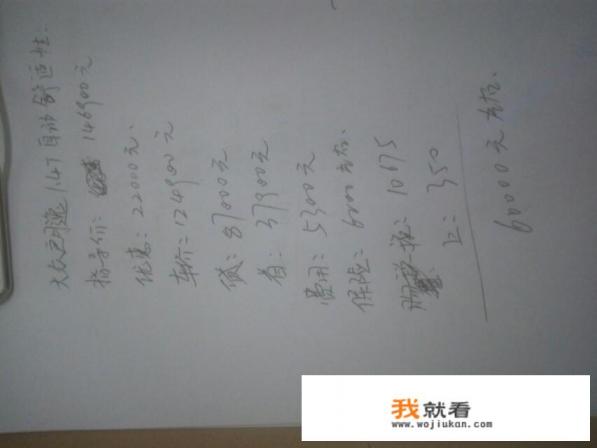 大众朗逸 1.4T 自动舒适性.
指导价: 146900元
优惠: 22000元.
车价: 124900元
贷: 87000元
首: 37900元
费用: 5300元
保险: 6000左右.
购 税: 10675
上: 350
60000元左右.
我就看
www.wojiukan.com